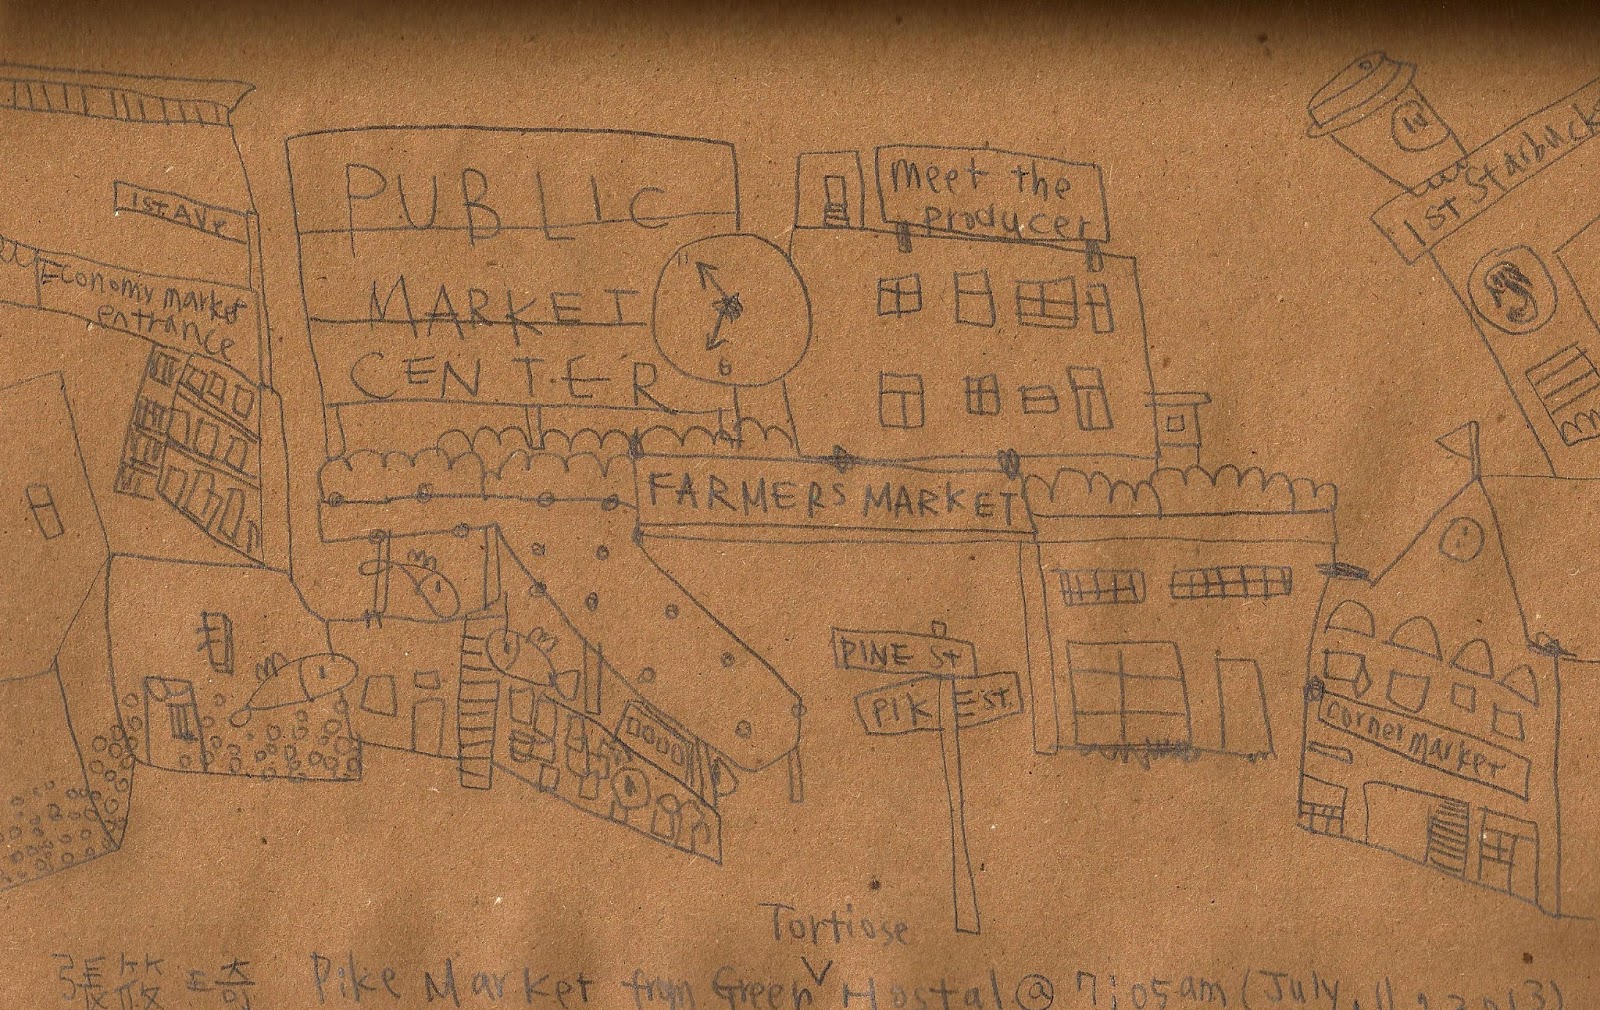 1st AVE
Economy market
entrance
PUBLIC
MARKET
CENTER
11
6
meet the
producer
1st Starbuck
FARMERS MARKET
PINE St
PIKE St.
corner market
Tortiose
張筱琦 Pike Market from Green Hostal @ 7:05am (July, 11, 2013)